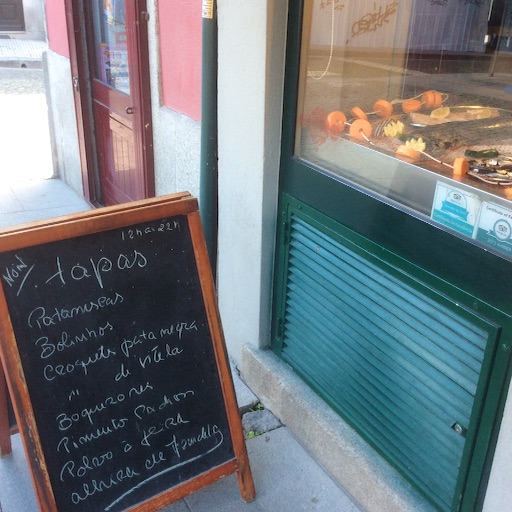 12h às 22h
NOW
tapas
Pataniscas
Bolinhos
Croquete pata negra
" de vitela
Boquerones
Pimento Padron
Polvo à feira
alheira de